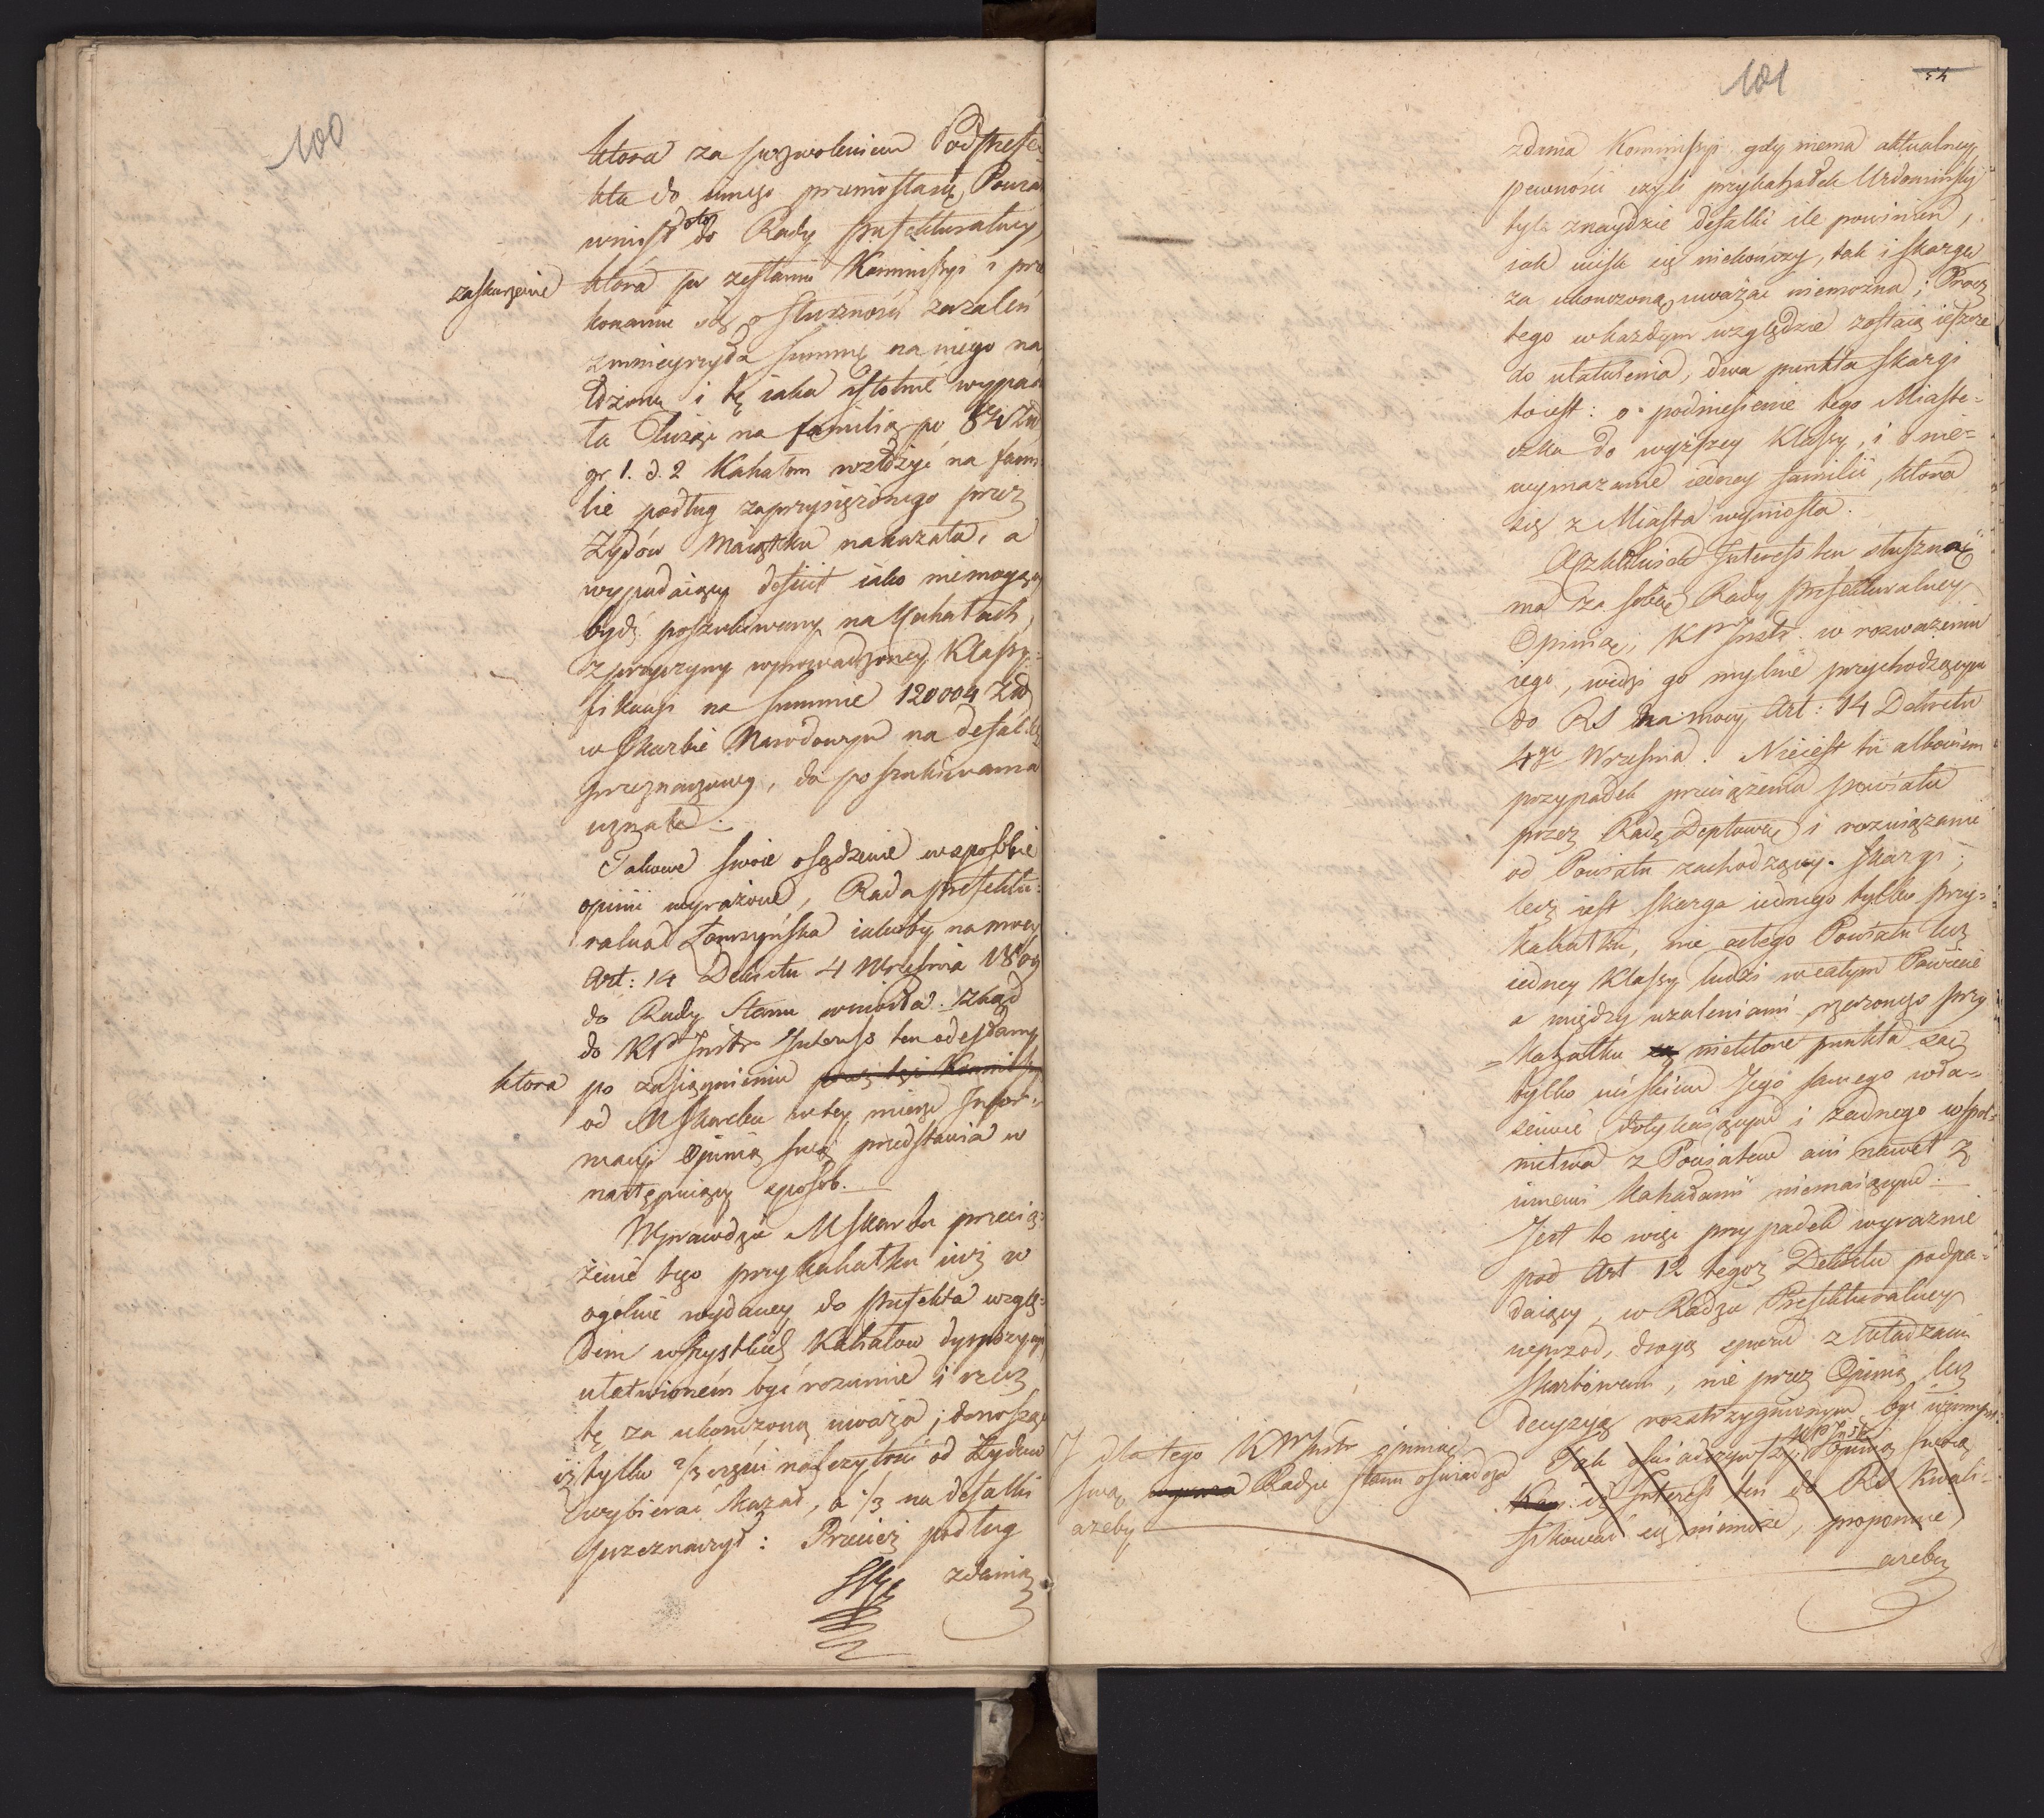 100
ktora za przyzwoleniem Podprefe-
kta do innego przeniosła się Powia
wniosł do Rady Prefekturalney
zaskarzenie
ktora po zesłaniu Kommissyi i prze
konaniu się o słuszności zazaleń
zmnieyszyła summę na niego na
łożoną i tę iaka istotnie wypad
ła licząc na familią po 84 Złł
gr 1. d. 2 Kahałom rozłożyć na fami
lie podług zaprzysięzonego przez
Zydów Maiątku nakazała, a
wypadaiący deficit iako niemogący
bydź poszukiwany na Kahałach,
z przyczyny wprowadzoney Klassy-
fikacyi na summie 120004 Złł
w Skarbie Narodowym na defalki
przeznaczoney, do poszukiwania
uznała.
Takowe swoie osądzenie w sposobie
opinii wyrażone, Rada Prefektu-
ralna Łomzyńska iakoby na mocy
Art: 14 Dekretu 4 Września 1809
do Rady Stanu wniosła. Zkąd
do KP Instr Interess ten odesłany
ktora
po zasiągnieniu przez tęż Kommissyą
od MSkarbu w tey mierze Infor-
macyi Opinią swą przedstawia w
następuiący sposob.
Wprawdzie MSkarbu przecią-
żenie tego przykahałku iuż w
ogólnie wydaney do Prefekta wzglę-
dem wszystkich Kahałow dyspozycyi
ułatwionem być rozumie i rzecz
tę za ukończoną uważa; donosząc
iż tylko 2/3 części należytości od Zydow
wybierać kazał, a 1/3 na defalki
przeznaczył: Przecież podług
zdania
101
54
zdania Kommissyi gdy niema aktualney
pewności czyli przykahałek Urdomiński
tyle znaydzie defalki ile powinien,
iak ucisk się niekończy, tak i skarga
za ukonczoną uważać niemożna; Procz
tego w każdym względzie zostaią ieszcze
do ułatwienia, dwa punkta skargi
to iest: o podniesienie tego Miaste-
czka do wyższey Klassy, i o nie-
wymazanie iedney familii, ktora
się z Miasta wyniosła.
Aczkolwiek Interess ten słuszność
ma za sobą Rady Prefekturalney
Opinią, KP Instr. w rozważeniu
iego, widzi go mylnie przychodzącym
do RS na mocy Art: 14 Dekretu
4go Września. Nieiest tu albowiem
przypadek przeciążenia powiatu
przez Radę Deptową i rozwiązanie
od Powiatu zachodzącey skargi;
lecz iest skarga iednego tylko przy-
kahałku, nie całego Powiatu lecz
iedney Klassy ludzi w całym Powiecie
a między uzaleniami rzeczonego przy
-kahałku są niektore punkta zaś
tylko uciskiem Jego samego wła-
ściwie dotykaiącym i żadnego wspol-
nictwa z Powiatem ani nawet z
innemi Kahałami niemaiącym.
Jest to więc przypadek wyraznie
pod Art 12 tegoż Dekretu podpa-
daiący, w Radzie Prefekturalney
wprzod, drogą sporu z Władzami
Skarbowemi, nie przez Opinią lecz
decyzyą rozstrzygnionym być winnym.
KP Instr
Tak oswiadczywszy Opinią swoią
iż Interess ten do RS kwali-
fikować się niemoże, proponuie
azeby
I dla tego KP Instr opinią
swą Radzie Stanu oświadcza
azeby